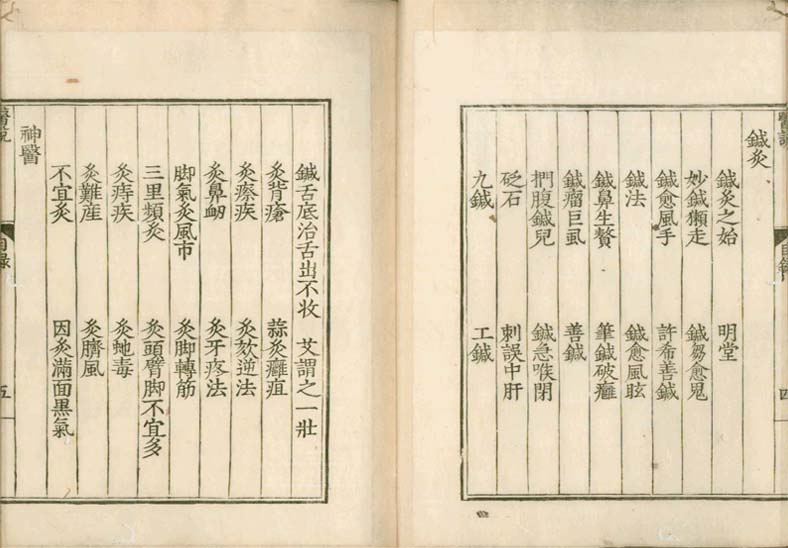 鍼灸
鍼灸之始 明堂
妙鍼獺走 鍼芻愈鬼
鍼愈風手 許希善鍼
鍼法 鍼愈風眩
鍼鼻生贅 筆鍼破癰
鍼瘤巨虱 善鍼
捫腹鍼兒 鍼急喉閉
砭石 刺誤中肝
九鍼 工鍼
鍼舌底治舌出不收 艾謂之一壯
灸背瘡 蒜灸癰疽
灸瘵疾 灸欬逆法
灸鼻衂 灸牙疼法
脚氣灸風市 灸脚轉筋
三里頻灸 灸頭臂脚不宜多
灸痔疾 灸虵毒
灸難産 灸臍風
不宜灸 因灸滿面黒氣
神醫
目錄 五